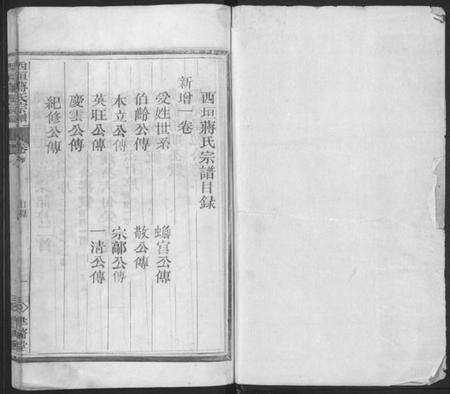 西垣蔣氏宗譜目錄
新增一卷
受姓世系 蟾宮公傳
伯齡公傳 敬公傳
本立公傳 宗鄺公傳
英旺公傳 一清公傳
慶雲公傳
紀修公傳
西垣蔣氏宗譜
目錄